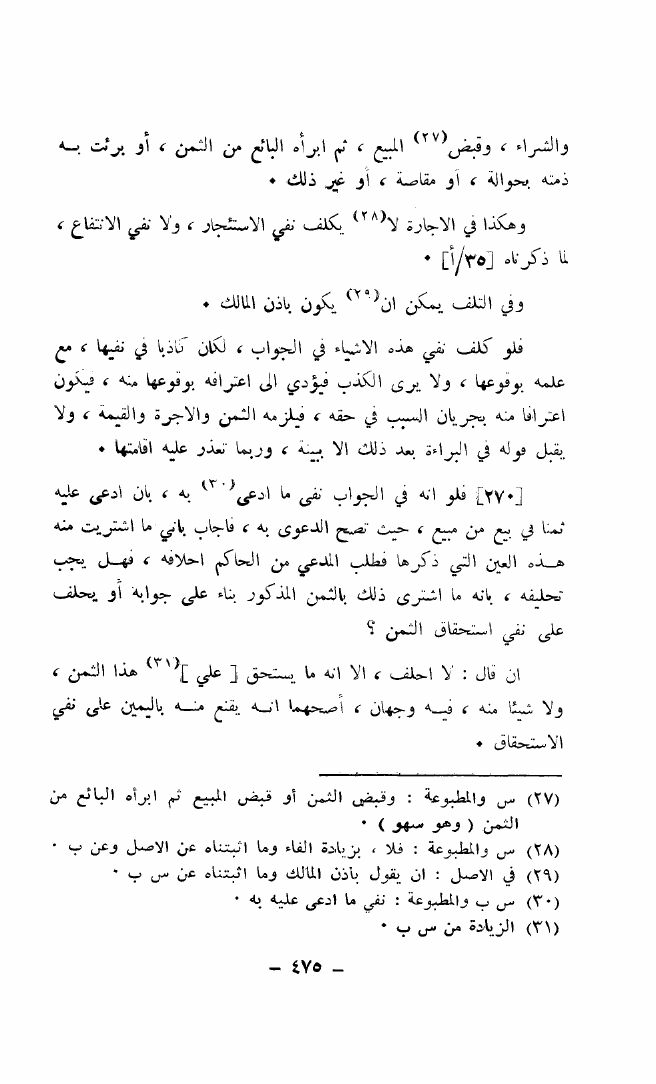 والشراء ، وقبض(٢٧) المبيع ، ثم ابرأه البائع من الثمن ، أو برئت بـه
ذمته بحوالة ، أو مقاصة ، أو غير ذلك ٠
وهكذا في الاجارة لا(٢٨) يكلف نفي الاستئجار ، ولا نفي الانتفاع ،
لما ذكرناه [٣٥/أ] ٠
وفي التلف يمكن ان(٢٩) يكون باذن المالك ٠
فلو كلف نفي هذه الاشياء في الجواب ، لكان كاذبا في نفيها ، مع
علمه بوقوعها ، ولا يرى الكذب فيؤدي الى اعترافه بوقوعها منه ، فيكون
اعترافا منه بجريان السبب في حقه ، فيلزمه الثمن والاجرة والقيمة ، ولا
يقبل قوله في البراءة بعد ذلك الا ببينة ، وربما تعذر عليه اقامتها ٠
[٢٧٠] فلو انه في الجواب نفى ما ادعى(٣٠) به ، بان ادعى عليه
ثمنا في بيع من مبيع ، حيث تصح الدعوى به ، فاجاب باني ما اشتريت منه
هـذه العين التي ذكرها فطلب المدعي من الحاكم احلافه ، فهـل يجب
تحليفه ، بانه ما اشترى ذلك بالثمن المذكور بناء على جوابه أو يحلف
على نفي استحقاق الثمن ؟
ان قال : لا احلف ، الا انه ما يستحق [ علي ](٣١) هذا الثمن ،
ولا شيئا منه ، فيـه وجهان ، أصحهما انـه يقنع منـه باليمين على نفي
الاستحقاق ٠
(٢٧) س والمطبوعة : وقبض الثمن أو قبض المبيع ثم ابرأه البائع من
الثمن ( وهو سهو ) ٠
(٢٨) س والمطبوعة : فلا ، بزيادة الفاء وما اثبتناه عن الاصل وعن ب ٠
(٢٩) في الاصل : ان يقول بأذن المالك وما اثبتناه عن س ب ٠
(٣٠) س ب والمطبوعة : نفي ما ادعى عليه به ٠
(٣١) الزيادة من س ب ٠
– ٤٧٥ –